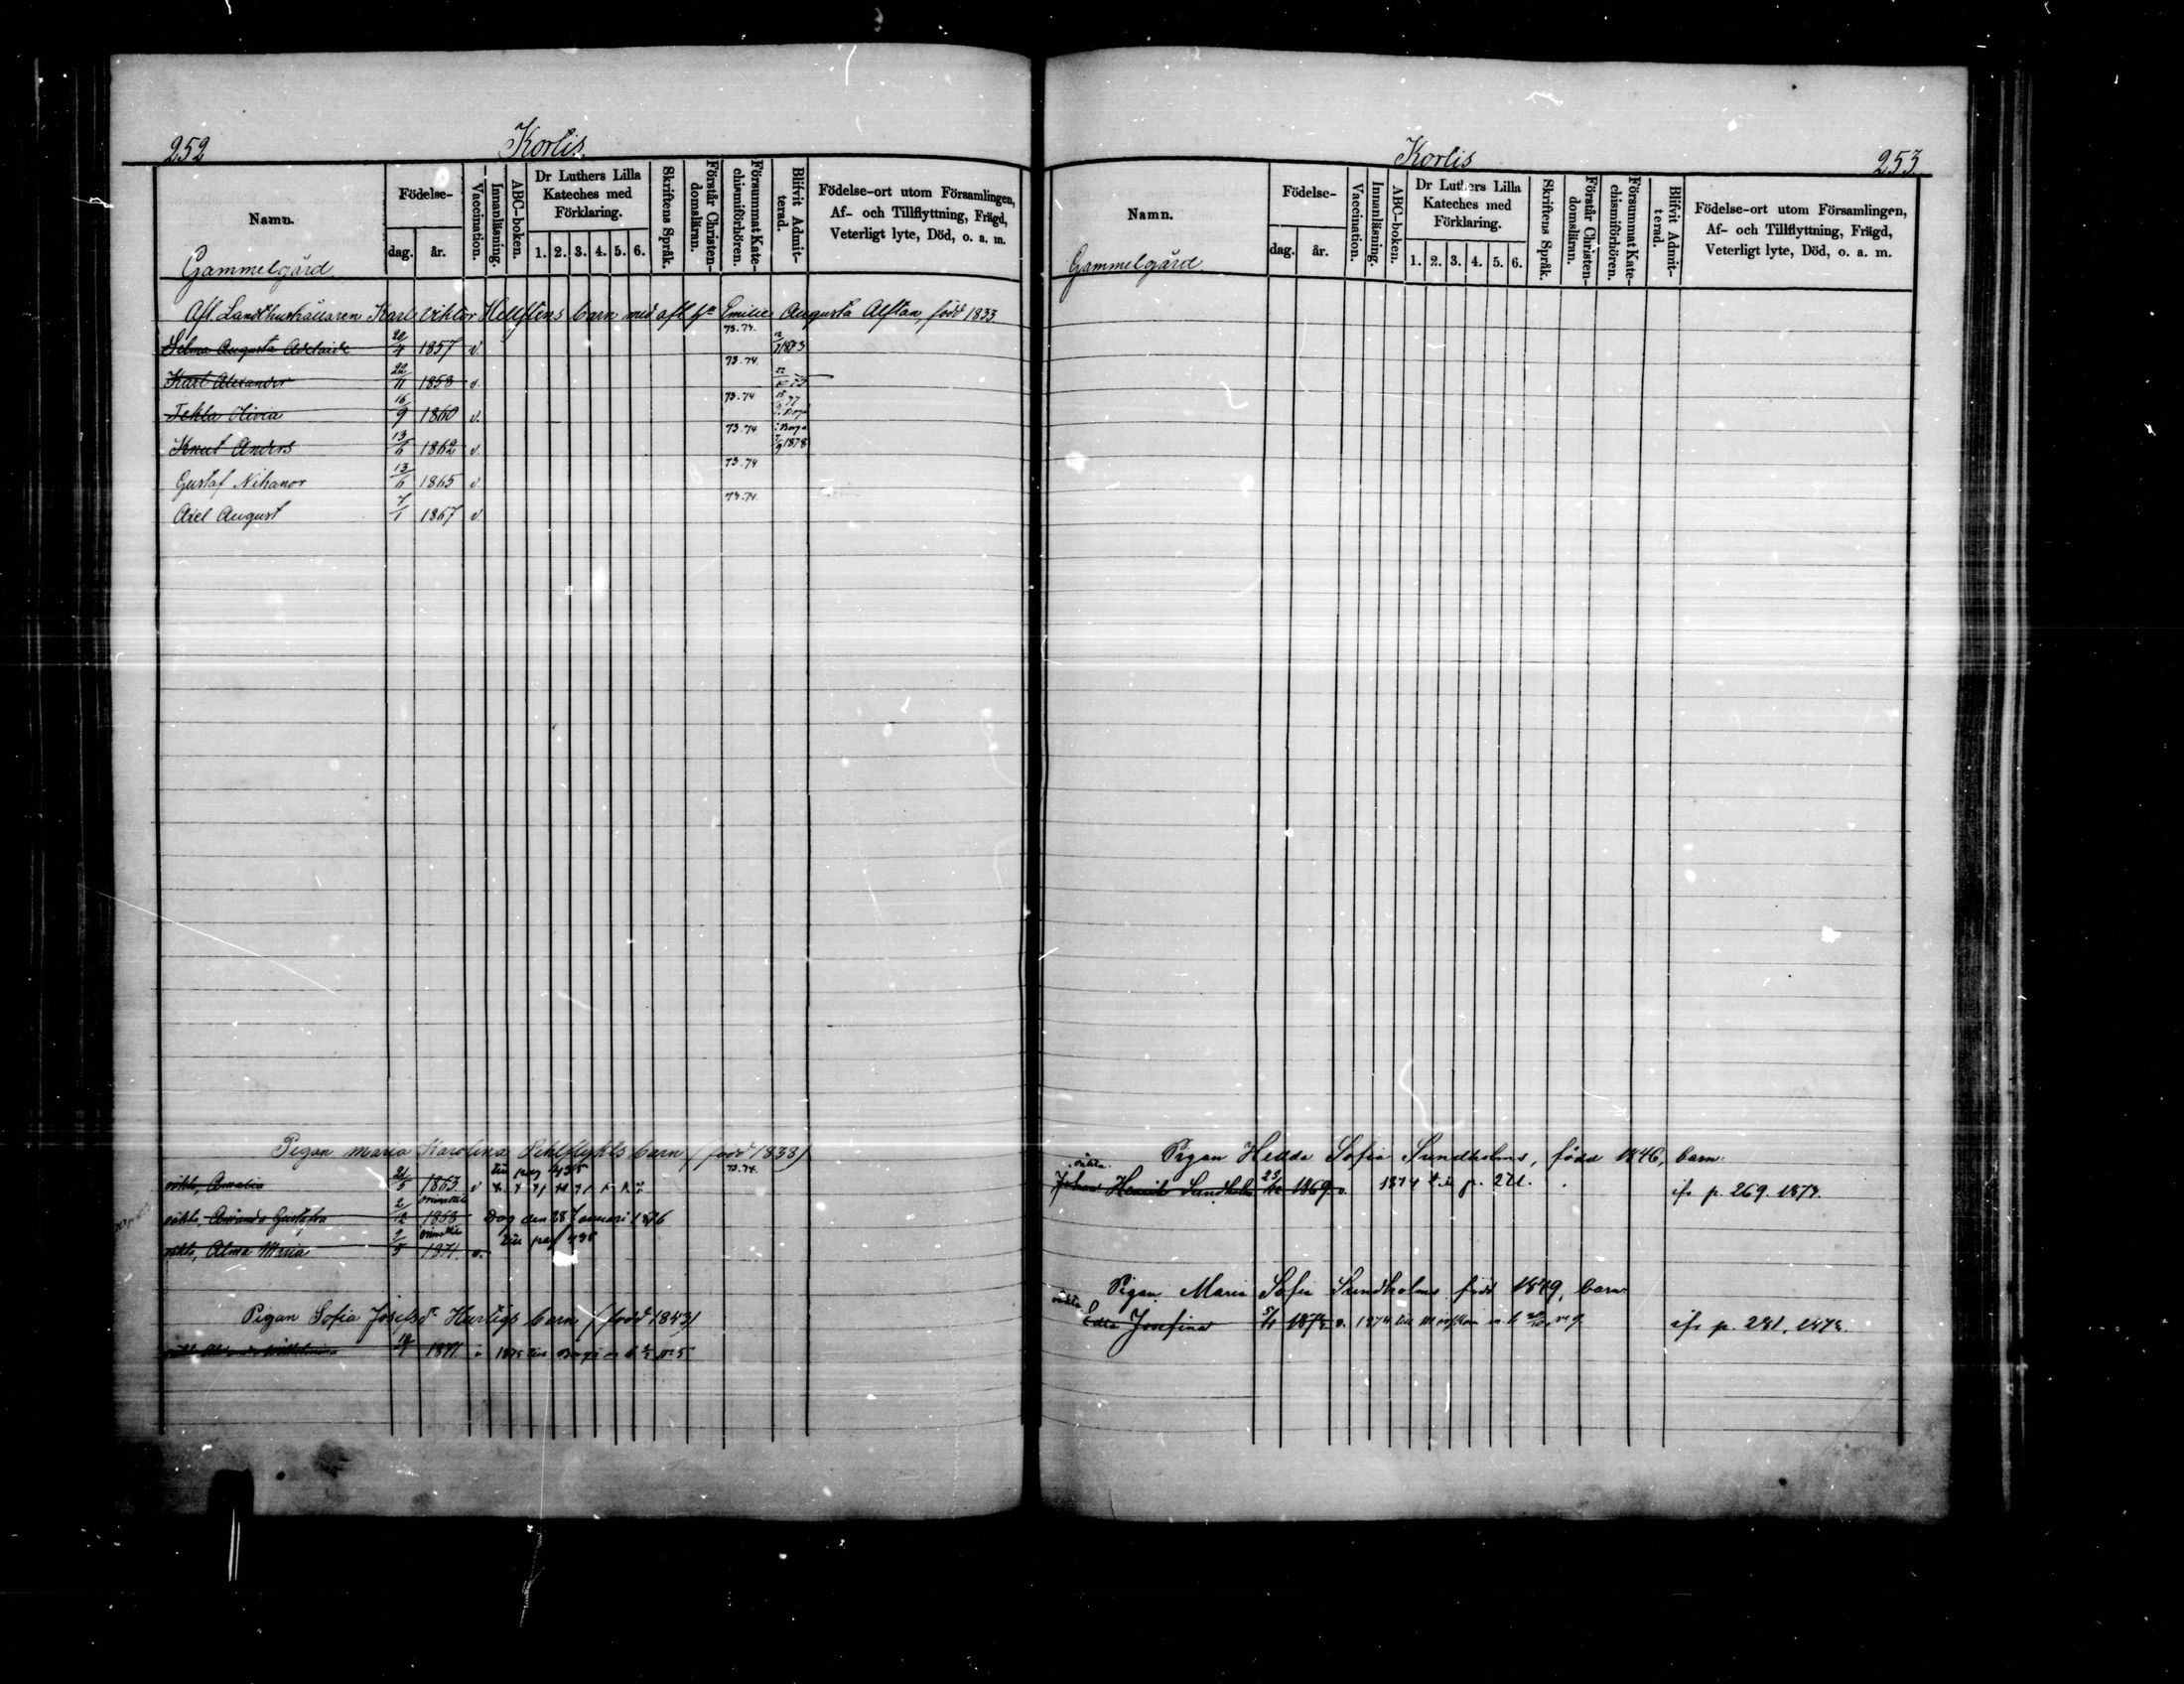 252
Korlis.
Namn.
Födelse-
dag.
år.
Vaccination.
Innanläsning.
ABC-boken.
Dr Luthers Lilla
Kateches med
Förklaring.
1. 2. 3. 4. 5. 6.
Skriftens Språk.
Förstår Christen-
domsläran.
Försummat Kate-
chismiförhören.
Blifvit Admit-
terad.
Födelse-ort utom Församlingen,
Af- och Tillflyttning, Frägd,
Veterligt lyte, Död, o. a. m.
Gammelgård
Afl. Landthushållaren Karl Viktor Hellstens barn med afl. Emilie Augusta Alftan, född 1833
Selma Augusta Adelaide 20/4 1857 v. 73.74.
Karl Alexander 22/11 1858 v. 73.74.
Tekla Olivia 16/9 1860 v. 73.74
Knut Anders 13/6 1862 v. 73.74. 1878
Gustaf Nikanor 13/6 1865 v. 73.74
Axel August 7/1 1867 v 73.74.
Pigan Maria Karolina barn (född 1838)
oäkta, Amalia 21/5 1863 v 73.74.
oäkta, Amanda Gustafva 2/12 1868 Dog den 28 Januari 1876
oäkta, Alma Maria 2/5 1871. v.
Pigan Sofia Josefsdr Hurtigs barn (född 1843)
1871. v 1875 till Borgå
253.
Korlis
Namn.
Födelse-
dag.
år.
Vaccination.
Innanläsning.
ABC-boken.
Dr Luthers Lilla
Kateches med
Förklaring.
1. 2. 3. 4. 5. 6.
Skriftens Språk.
Förstår Christen-
domsläran.
Försummat Kate-
chismiförhören.
Blifvit Admit-
terad.
Födelse-ort utom Församlingen,
Af- och Tillflyttning, Frägd,
Veterligt lyte, Död, o. a. m.
Gammelgård
Pigan Hedda Sofia Sundholms, född 1846, barn
oäkta.
Johan Henrik Sundholm 1869 v. 1874 ifr p. 269. 1873.
Pigan Maria Sofia Sundholms född 1849, barn
oäkta
Edla Josefina v. 1874 ifr p. 281,